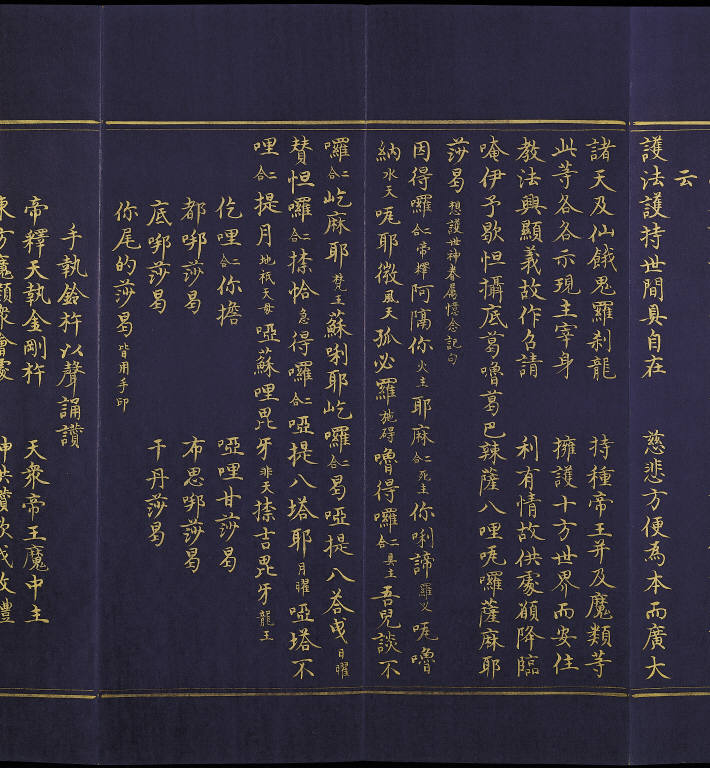 云
護法護持世間具自在　慈悲方便為本而廣大
諸天及仙餓鬼羅刹龍　持種帝王并及魔類等
此等各各示現主宰身　擁護十方世界而安住
教法興顯義故作召請　利有情故供處願降臨
唵伊予歇怛攝底葛嚕葛巴辣薩八哩唲囉薩麻耶
莎曷 想護世神眷属憶念記句
因得囉 二合 帝釋 阿隔你 火主 耶麻 二合 死主 你唎諦 羅义 唲嚕
納 水天 唲耶微 風天 孤必羅 施碍 嚕得囉 二合 具主 吾兒談不
囉 二合 屹麻耶 梵王 蘇唎耶屹囉 二合 曷啞提八荅曳 日曜
賛怛囉 二合 捺恰 急 得囉 二合 啞提八塔耶 月曜 啞塔不
哩 二合 提月 地祇天母 啞蘇哩毘牙 非天 捺吉毘牙 龍王
仡哩 二合 你擔　啞哩甘莎曷
都啣莎曷　布思啣莎曷
底啣莎曷　干丹莎曷
你尾的莎曷 皆用手印
手執鈴杵以聲誦讚
帝釋天執金剛杵　天衆帝王魔中主
東方魔類衆會處　神供讚歎成故禮